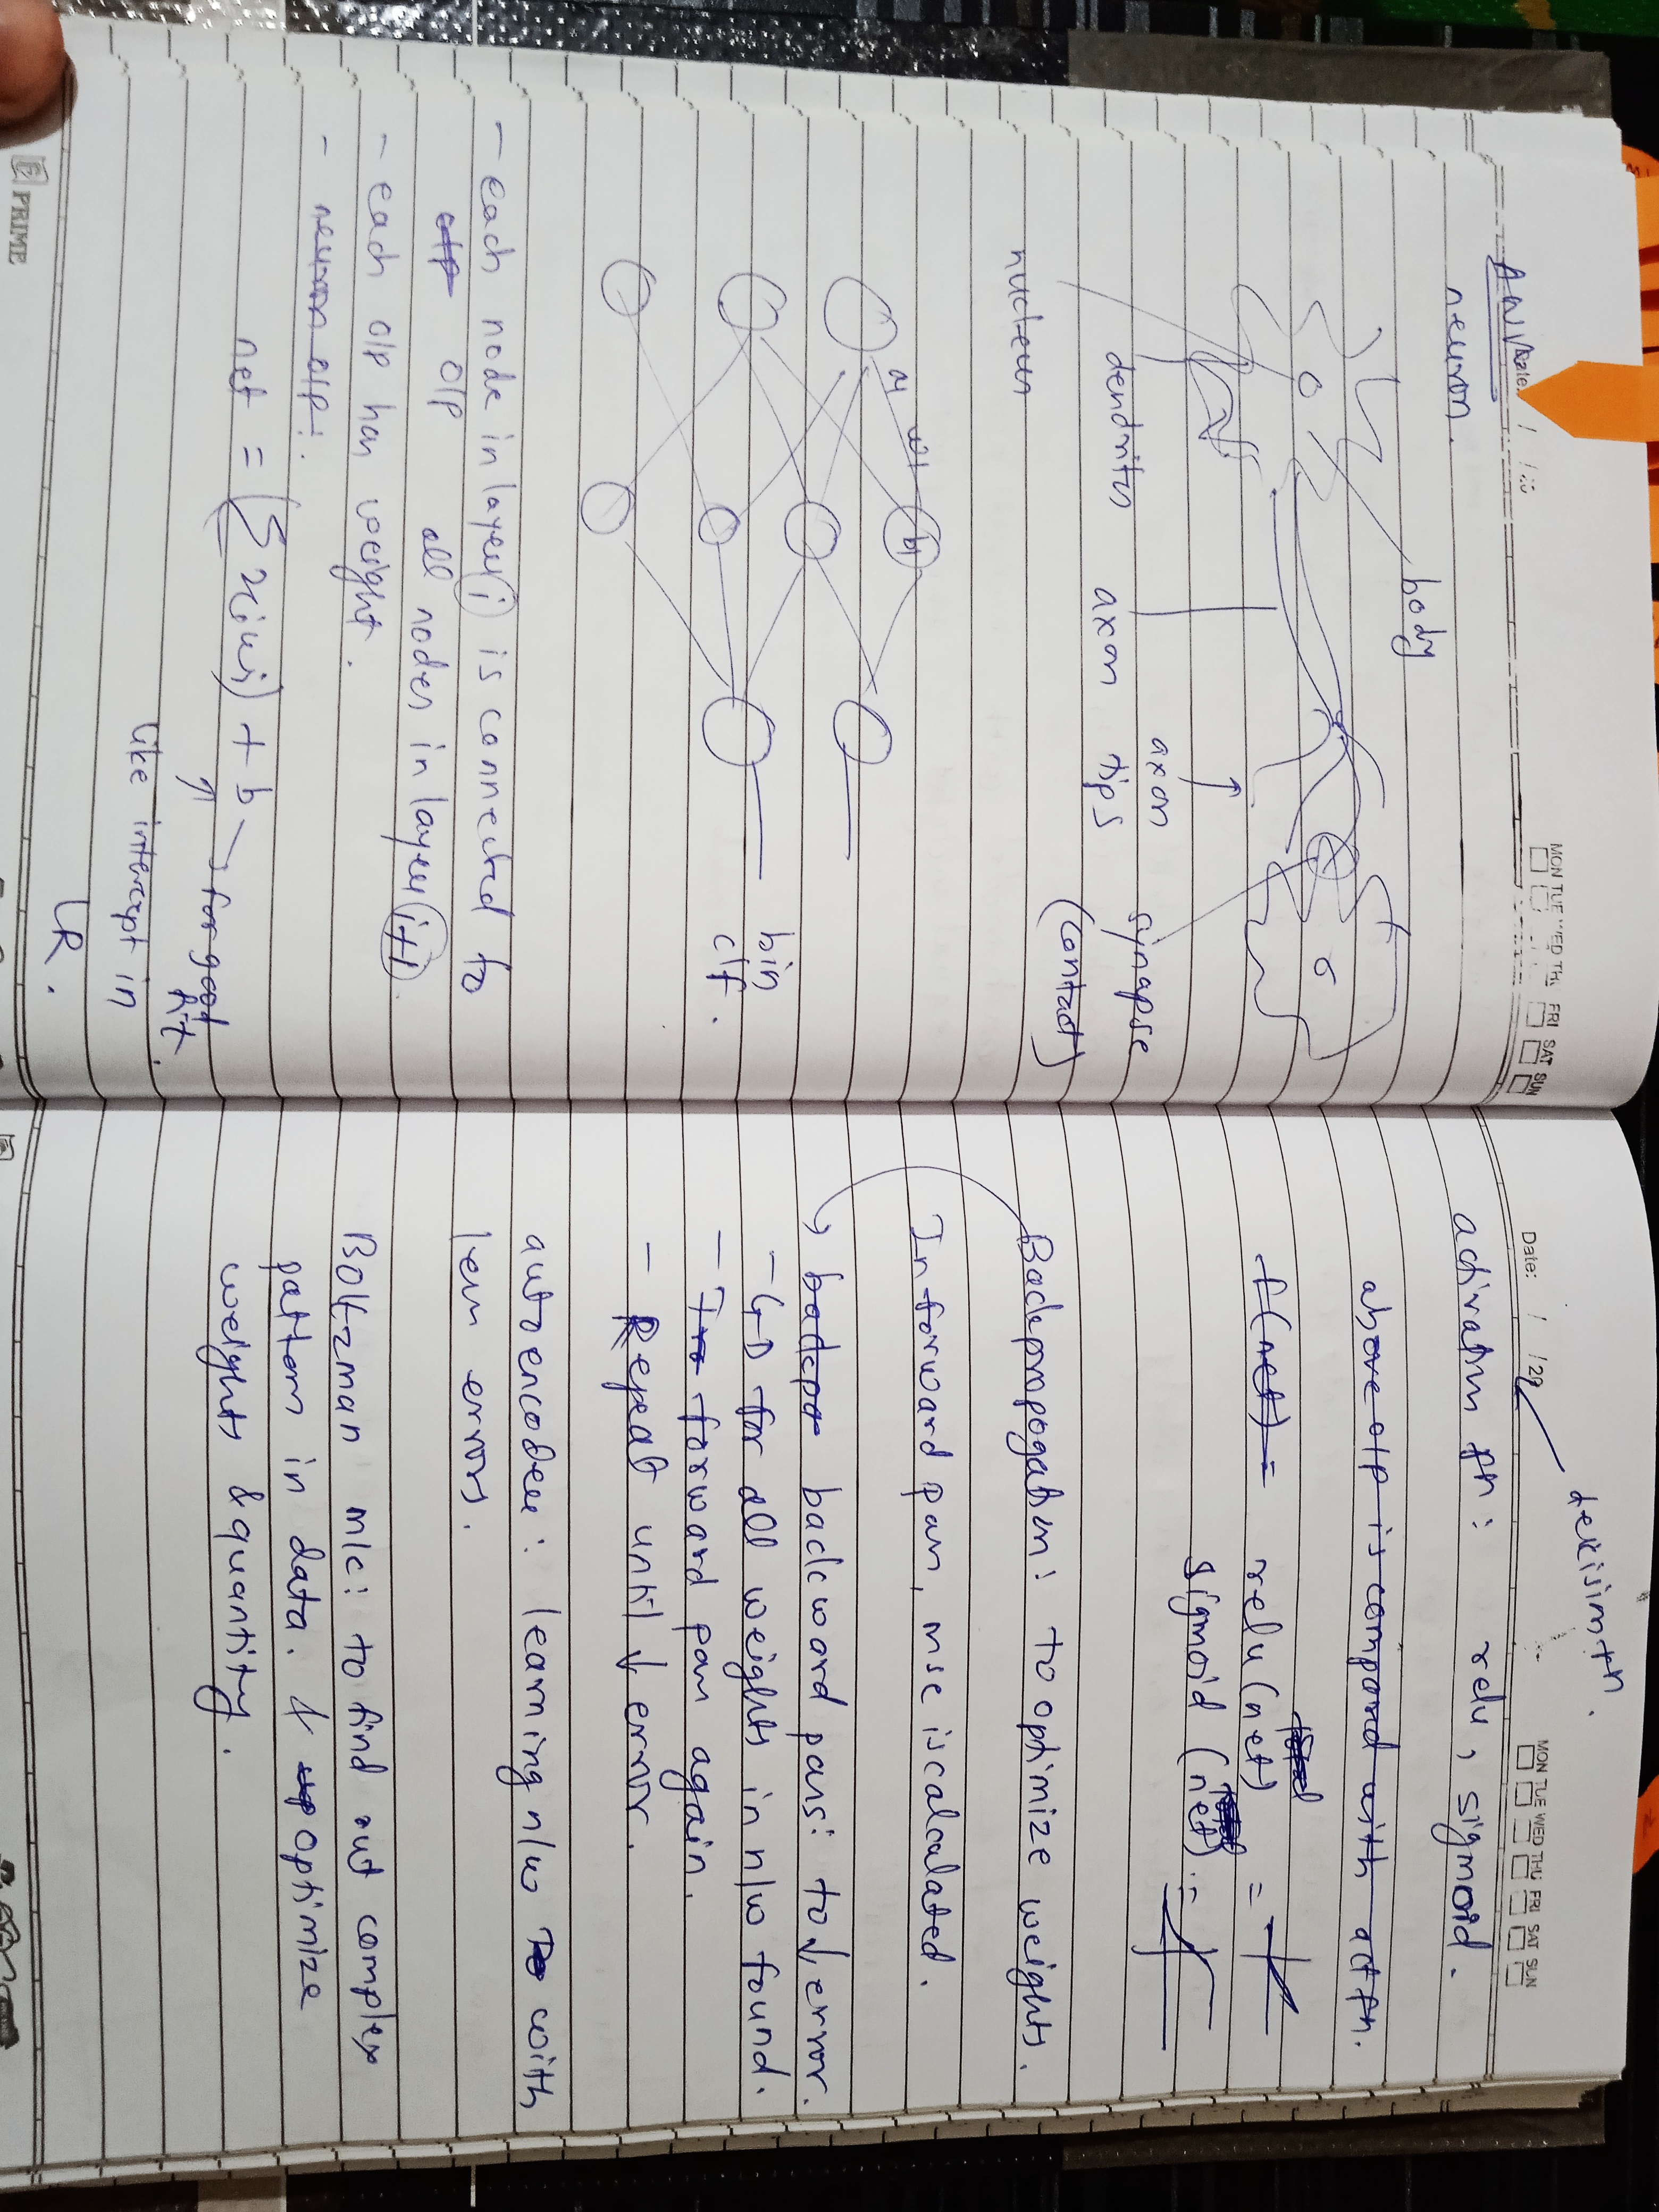 ANN
Date: / /20
MON TUE WED THU FRI SAT SUN
neuron.
body
axon
dendrites axon tips synapse
(contact)
nucleus
x1 w1 b1
bin
clf.
- each node in layer i is connected to
o/p all nodes in layer i+1.
- each o/p has weight.
- neuron o/p:
net = (Σ xiwi) + b → for good
fit.
like intercept in
LR.
PRIME
Date: / /20
MON TUE WED THU FRI SAT SUN
activatn fn: relu, sigmoid.
above o/p is compared with act fn.
f(net) = relu (net) =
sigmoid (net) =
Backpropogatin: to optimize weights.
In forward pass, mse is calculated.
backward pass: to ↓ error.
- GD for all weights in n/w found.
- forward pass again.
- Repeat until ↓ error.
autoencoder: learning n/w with
less errors.
Boltzman m/c: to find out complex
pattern in data. & optimize
weights & quantity.